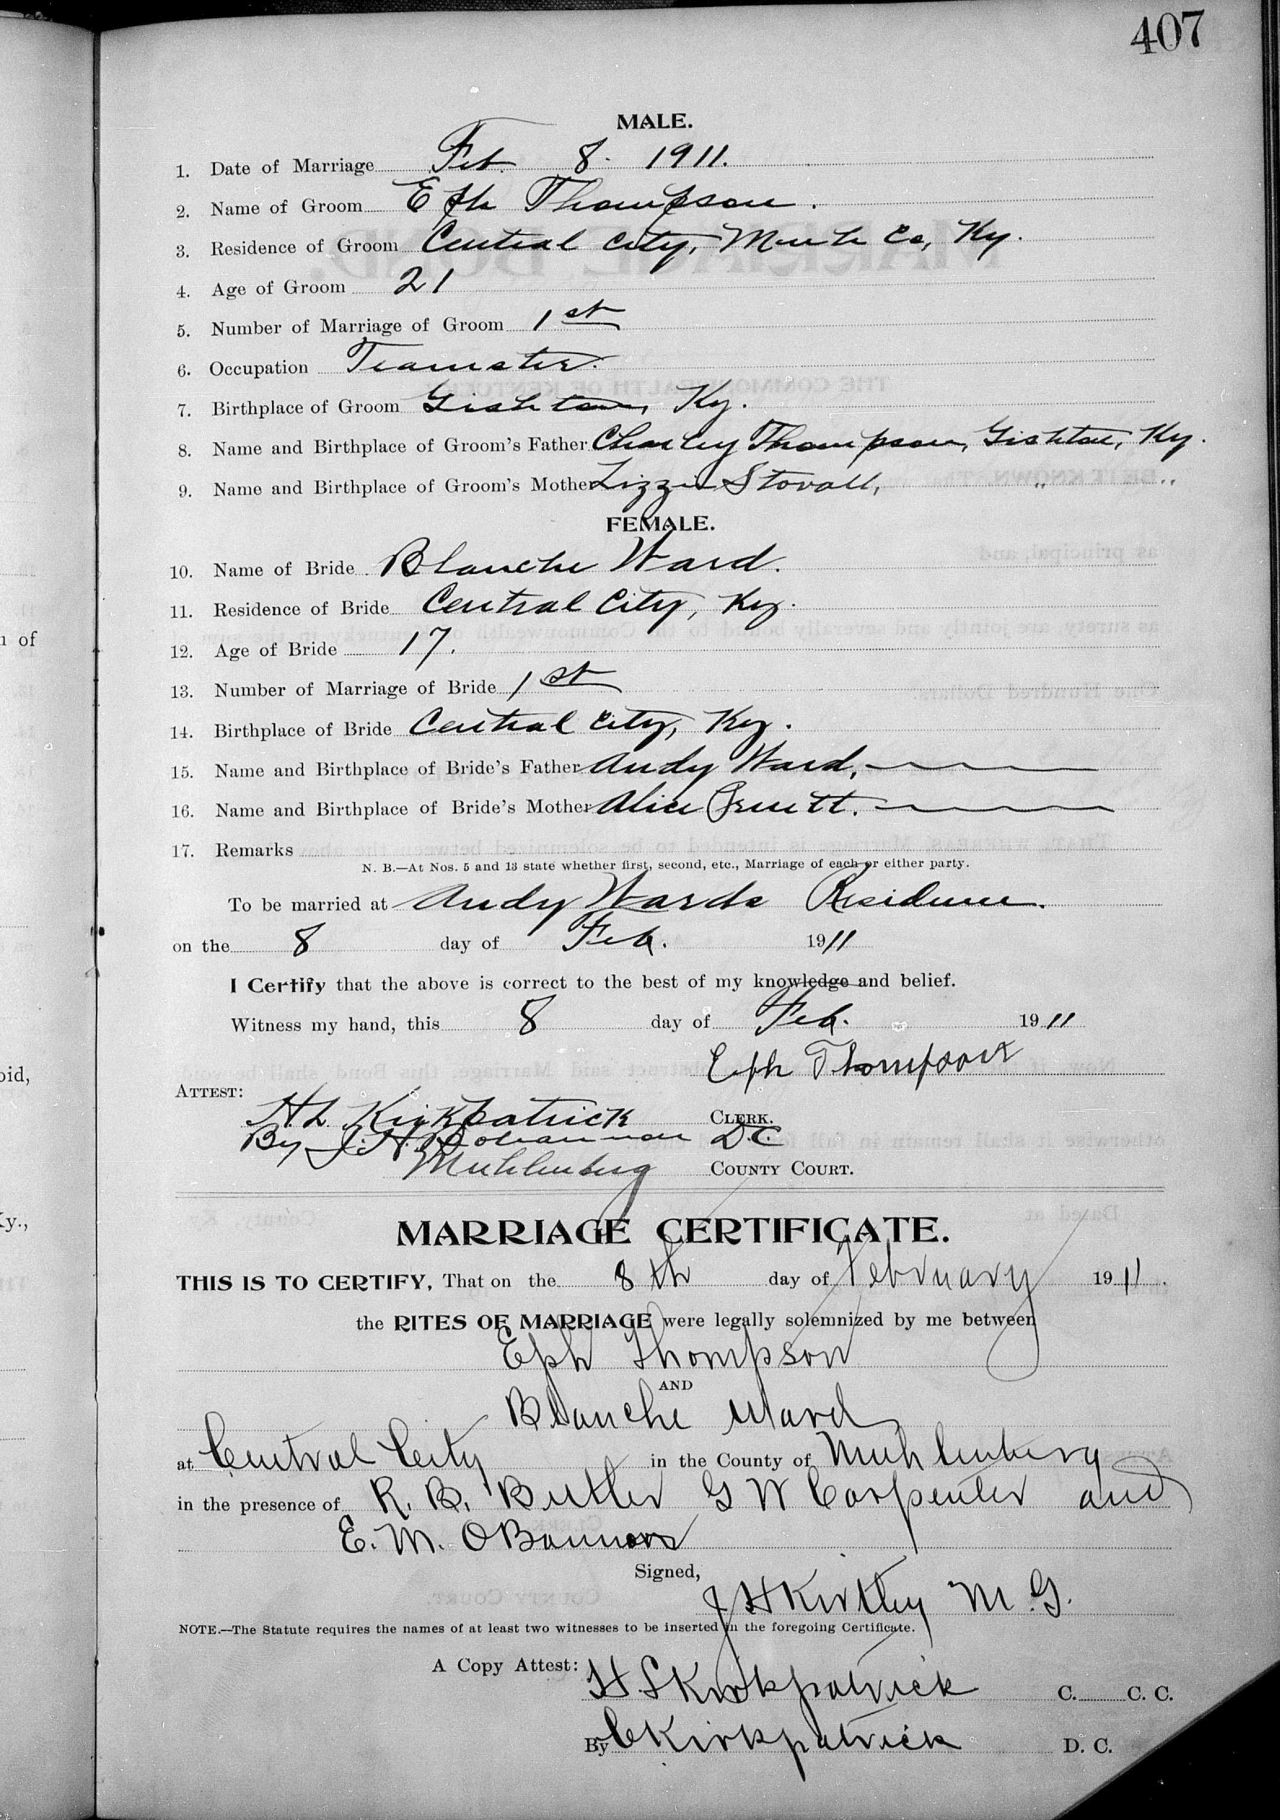 407
MALE.
1. Date of Marriage Feb. 8. 1911.
2. Name of Groom Eph Thompson.
3. Residence of Groom Central City, Muh Co, Ky.
4. Age of Groom 21
5. Number of Marriage of Groom 1st
6. Occupation Teamster.
7. Birthplace of Groom Gishton, Ky.
8. Name and Birthplace of Groom's Father Charley Thompson, Gishton, Ky.
9. Name and Birthplace of Groom's Mother Lizzie Stovall, " "
FEMALE.
10. Name of Bride Blanche Ward.
11. Residence of Bride Central City, Ky.
12. Age of Bride 17.
13. Number of Marriage of Bride 1st
14. Birthplace of Bride Central City, Ky.
15. Name and Birthplace of Bride's Father Andy Ward,
16. Name and Birthplace of Bride's Mother Alice Pruitt.
17. Remarks
N. B.—At Nos. 5 and 13 state whether first, second, etc., Marriage of each or either party.
To be married at Andy Wards Residence.
on the 8 day of Feb. 1911
I Certify that the above is correct to the best of my knowledge and belief.
Witness my hand, this 8 day of Feb. 1911
Eph Thompson
ATTEST:
H. L. Kirkpatrick CLERK.
By J. H. Bohannon D.C.
Muhlenberg COUNTY COURT.
MARRIAGE CERTIFICATE.
THIS IS TO CERTIFY, That on the 8th day of February 1911.
the RITES OF MARRIAGE were legally solemnized by me between
Eph Thompson
AND
Blanche Ward
at Central City in the County of Muhlenberg
in the presence of R. B. Butler G W Carpenter and
E. M. OBannon
Signed,
J H Kirtley M. G.
NOTE.—The Statute requires the names of at least two witnesses to be inserted in the foregoing Certificate.
A Copy Attest: H L Kirkpatrick C. C. C.
By C Kirkpatrick D. C.